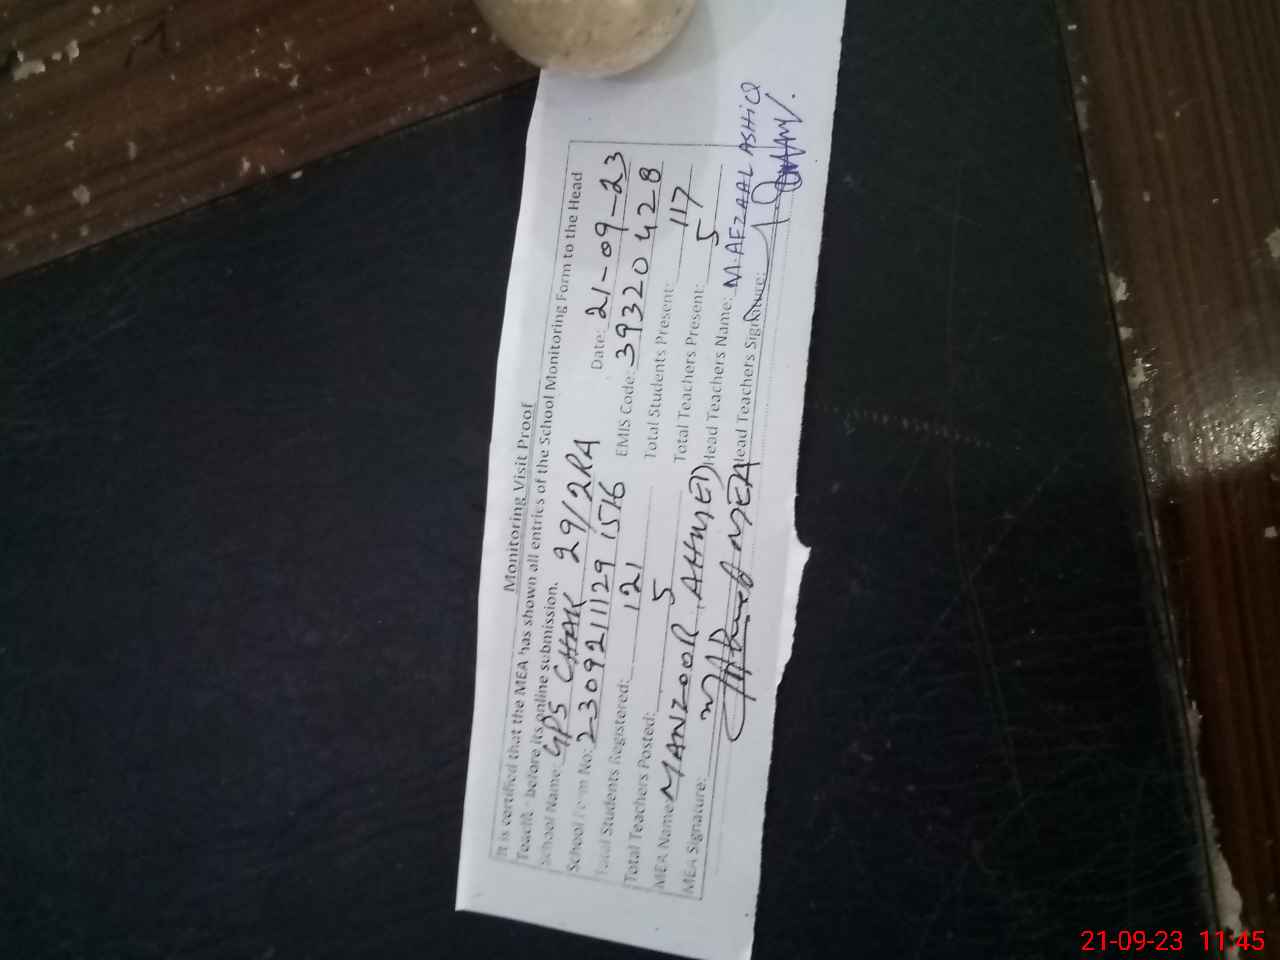 Monitoring Visit Proof
It is certified that the MEA has shown all entries of the School Monitoring Form to the Head
Teacher before its online submission.
School Name: GPS CHAK 29/2RA Date: 21-09-23
School Form No: 230921112915716 EMIS Code: 39320428
Total Students Registered: 121 Total Students Present: 117
Total Teachers Posted: 5 Total Teachers Present: 5
MEA Name: MANZOOR AHMED Head Teachers Name: M.AFZAAL ASHIQ
MEA Signature: MEA Head Teachers Signature:
21-09-23 11:45